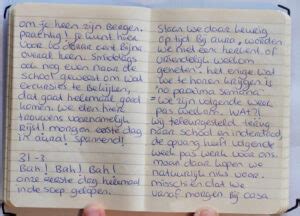 om je heen zijn Bergen,
prachtig! je kunt hier
voor 60 dollar cent Bijna
overal heen. Smiddags
ook nog even naar de
school geweest om wat
excursies te Bekijken,
dat gaat helemaal goed
komen we een heel
trouwens voornamelijk
Rijst! morgen eerste dag
in aura! Spannend!
31-3
Bah! Bah! Bah!
onze eerste dag helemaal
in de soep gelopen.
Staan we daar keurig
op tijd Bij aura, worden
we niet een heel erg
vriendelijk welkom
geheten. het enige wat
we te horen krijgen is
"la proxima semana"
= we zijn volgende week
pas welkom. WAT?!
wij teleurgesteld terug
naar school en inderdaad,
de opvang heeft volgende
week pas werk voor ons.
maar daar kopen we
natuurlijk niks voor.
misschien dat we
vanaf morgen Bij casa